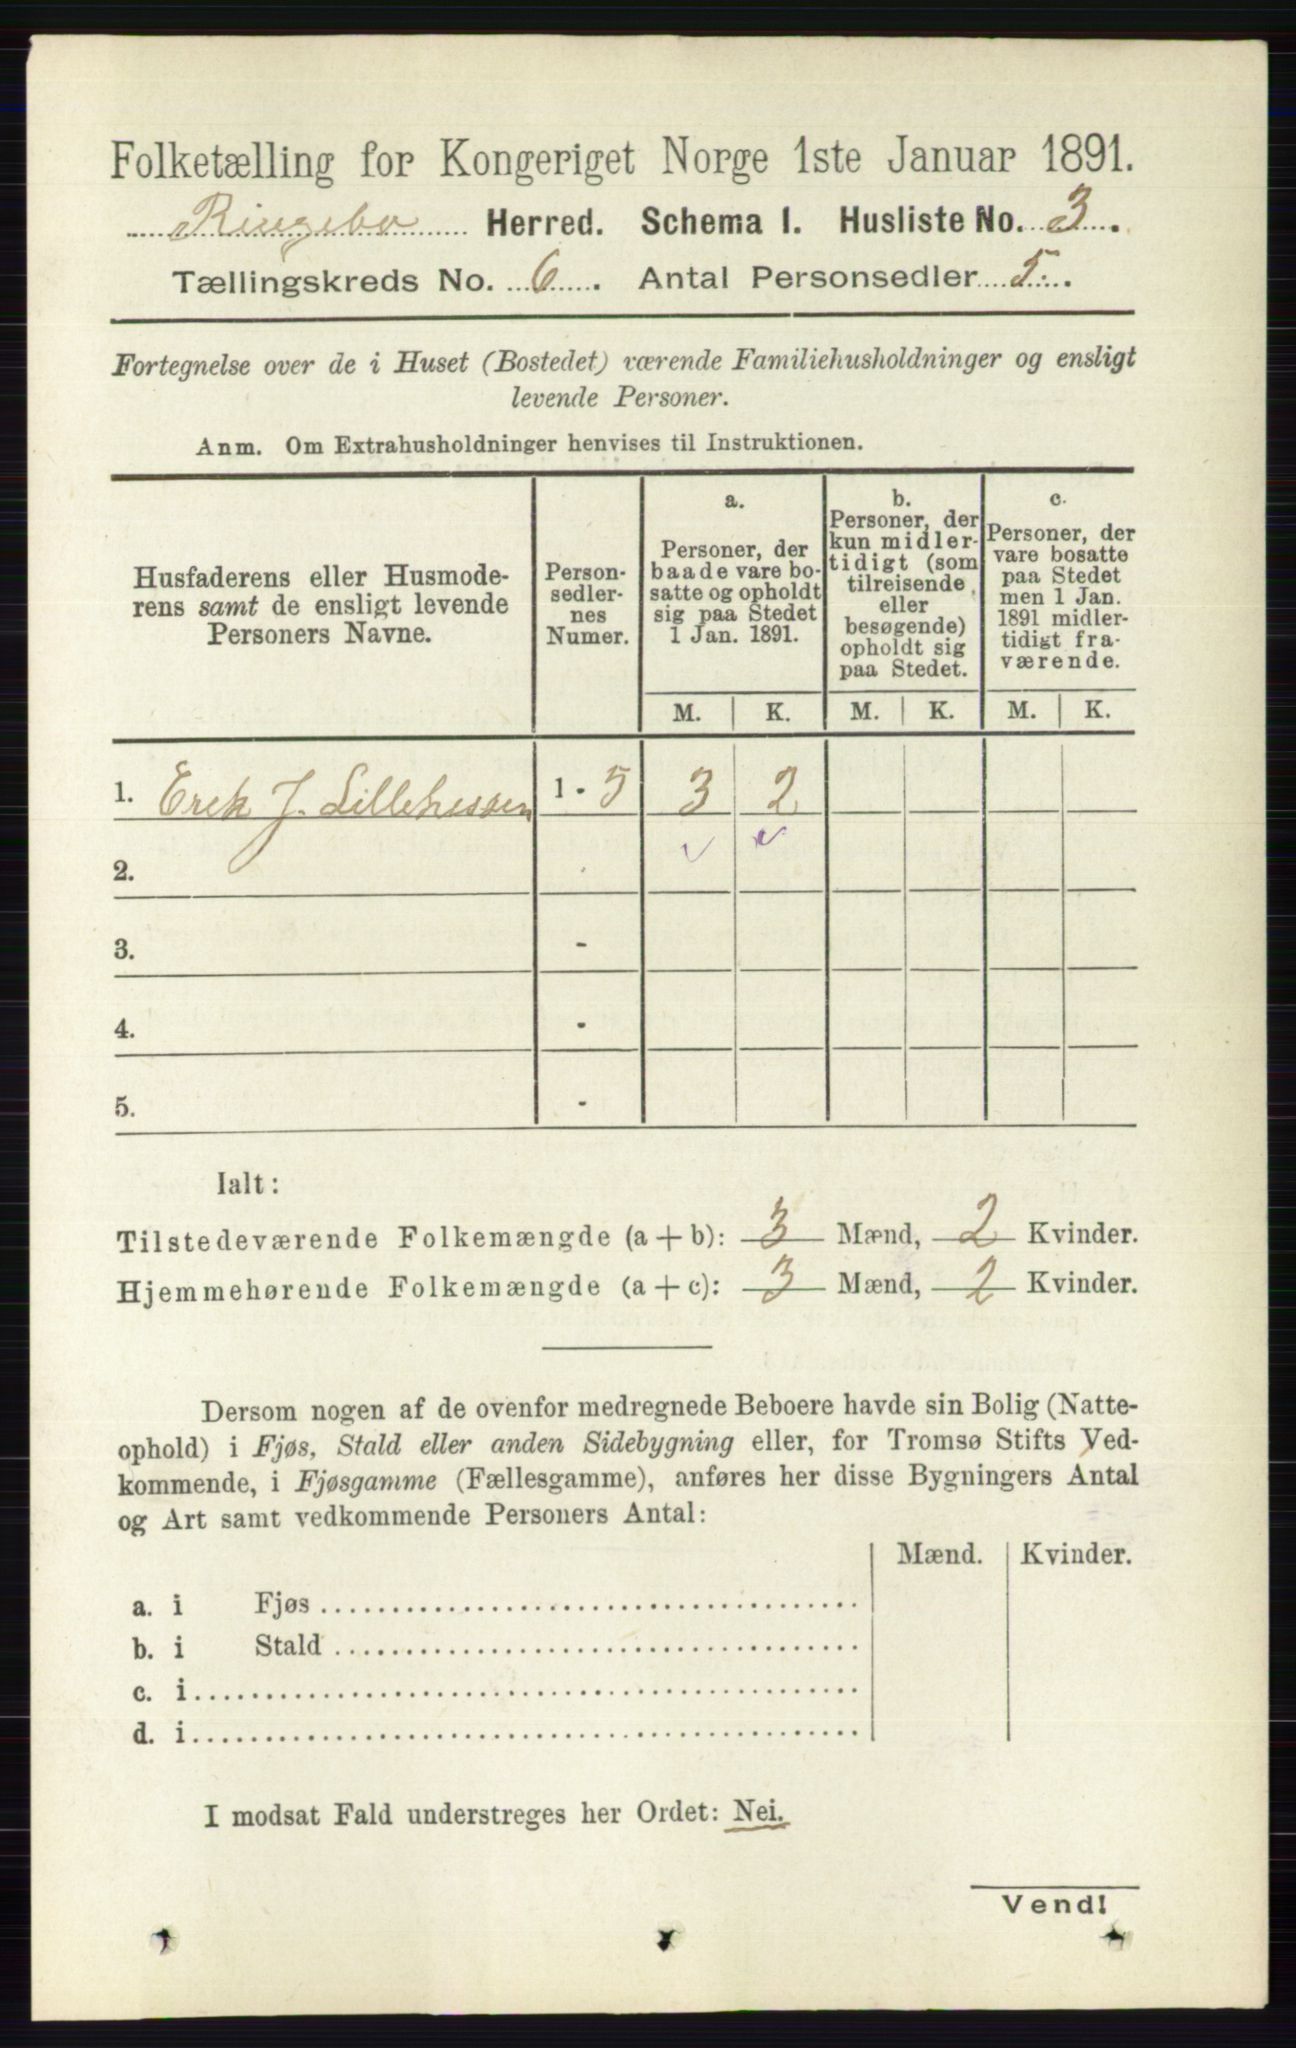 Folketælling for Kongeriget Norge 1ste Januar 1891.
Ringebo Herred. Schema I. Husliste No. 3.
Tællingskreds No. 6. Antal Personsedler 5.
Fortegnelse over de i Huset (Bostedet) værende Familiehusholdninger og ensligt
levende Personer.
Anm. Om Extrahusholdninger henvises til Instruktionen.
Husfaderens eller Husmode-
rens samt de ensligt levende
Personers Navne.
Person-
sedler-
nes
Numer.
a.
Personer, der
baade vare bo-
satte og opholdt
sig paa Stedet
1 Jan. 1891.
b.
Personer, der
kun midler-
tidigt (som
tilreisende
eller
besøgende)
opholdt sig
paa Stedet.
c.
Personer, der
vare bosatte
paa Stedet
men 1 Jan.
1891 midler-
tidigt fra-
værende.
M. K. M. K. M. K.
1. Erek J. Lillehessen 1 - 5 3 2
2.
3. -
4. -
5. -
Ialt:
Tilstedeværende Folkemængde (a + b): 3 Mænd, 2 Kvinder.
Hjemmehørende Folkemængde (a + c): 3 Mænd, 2 Kvinder.
Dersom nogen af de ovenfor medregnede Beboere havde sin Bolig (Natte-
ophold) i Fjøs, Stald eller anden Sidebygning eller, for Tromsø Stifts Ved-
kommende, i Fjøsgamme (Fællesgamme), anføres her disse Bygningers Antal
og Art samt vedkommende Personers Antal:
Mænd. Kvinder.
a. i Fjøs
b. i Stald
c. i
d. i
I modsat Fald understreges her Ordet: Nei.
Vend!